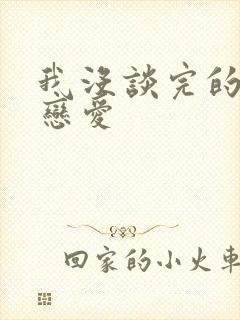 我沒談完的
戀愛
回家的小火車